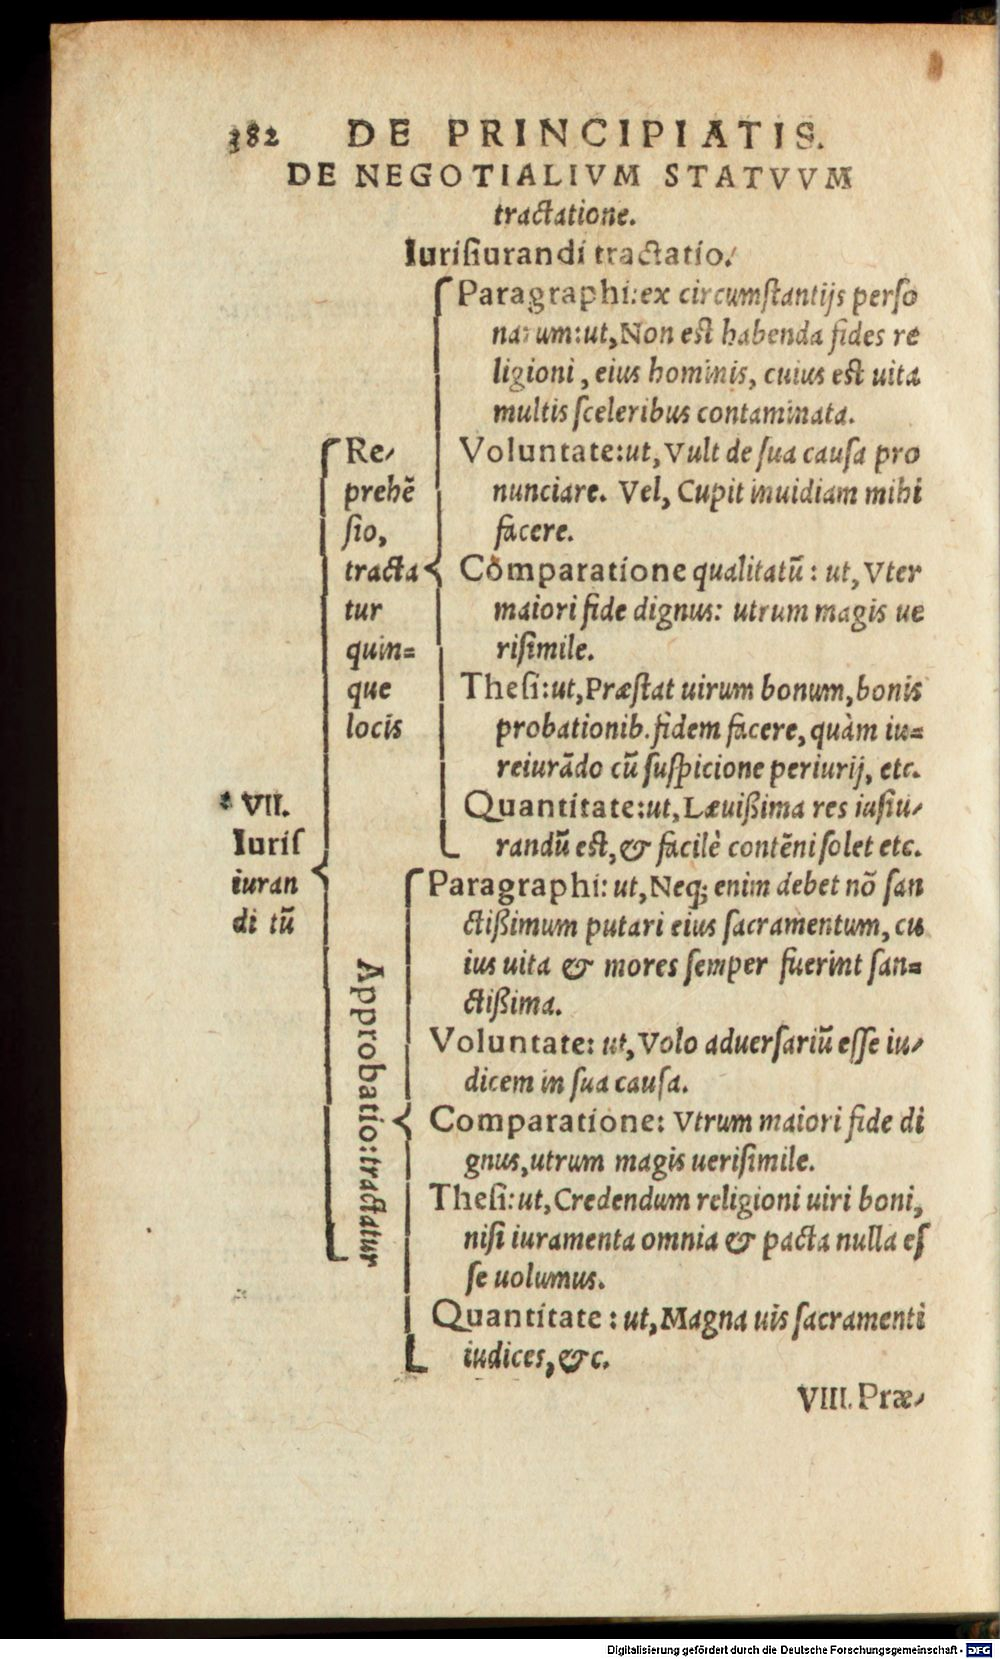 382 DE PRINCIPIATIS.
DE NEGOTIALIVM STATVVM
tractatione.
Iurisiurandi tractatio.
VII.
Iuriſ
iuran
di tũ
Re-
prehẽ
ſio,
tracta
tur
quin=
que
locis
Paragraphi: ex circumſtantijs perſo
narum: ut, Non est habenda fides re
ligioni, eius hominis, cuius est uita
multis ſceleribus contaminata.
Voluntate: ut, Vult de ſua cauſa pro
nunciare. Vel, Cupit inuidiam mihi
facere.
Cõmparatione qualitatũ: ut, Vter
maiori fide dignus: utrum magis ue
riſimile.
Theſi: ut, Præſtat uirum bonum, bonis
probationib. fidem facere, quàm iu=
reiurãdo cũ ſuſpicione periurij, etc.
Quantitate: ut, Læuißima res iuſiu-
randũ est, & facilè contẽni ſolet etc.
Approbatio: tractatur
Paragraphi: ut, Neq; enim debet nõ ſan
ctißimum putari eius ſacramentum, cu
ius uita & mores ſemper fuerint ſan=
ctißima.
Voluntate: ut, Volo aduerſariũ eſſe iu-
dicem in ſua cauſa.
Comparatione: Vtrum maiori fide di
gnus, utrum magis ueriſimile.
Theſi: ut, Credendum religioni uiri boni,
niſi iuramenta omnia & pacta nulla eſ
ſe uolumus.
Quantitate: ut, Magna uis ſacramenti
iudices, &c.
VIII. Præ-
Digitalisierung gefördert durch die Deutsche Forschungsgemeinschaft - DFG